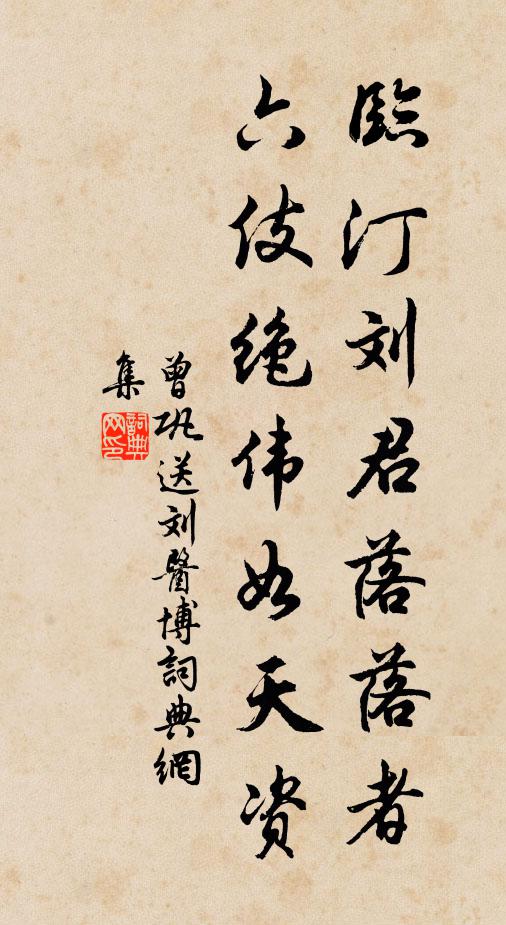 臨汀刘君落落者
六伎绝伟如天资
曾巩送刘醫博詞典網
集
詞典网印